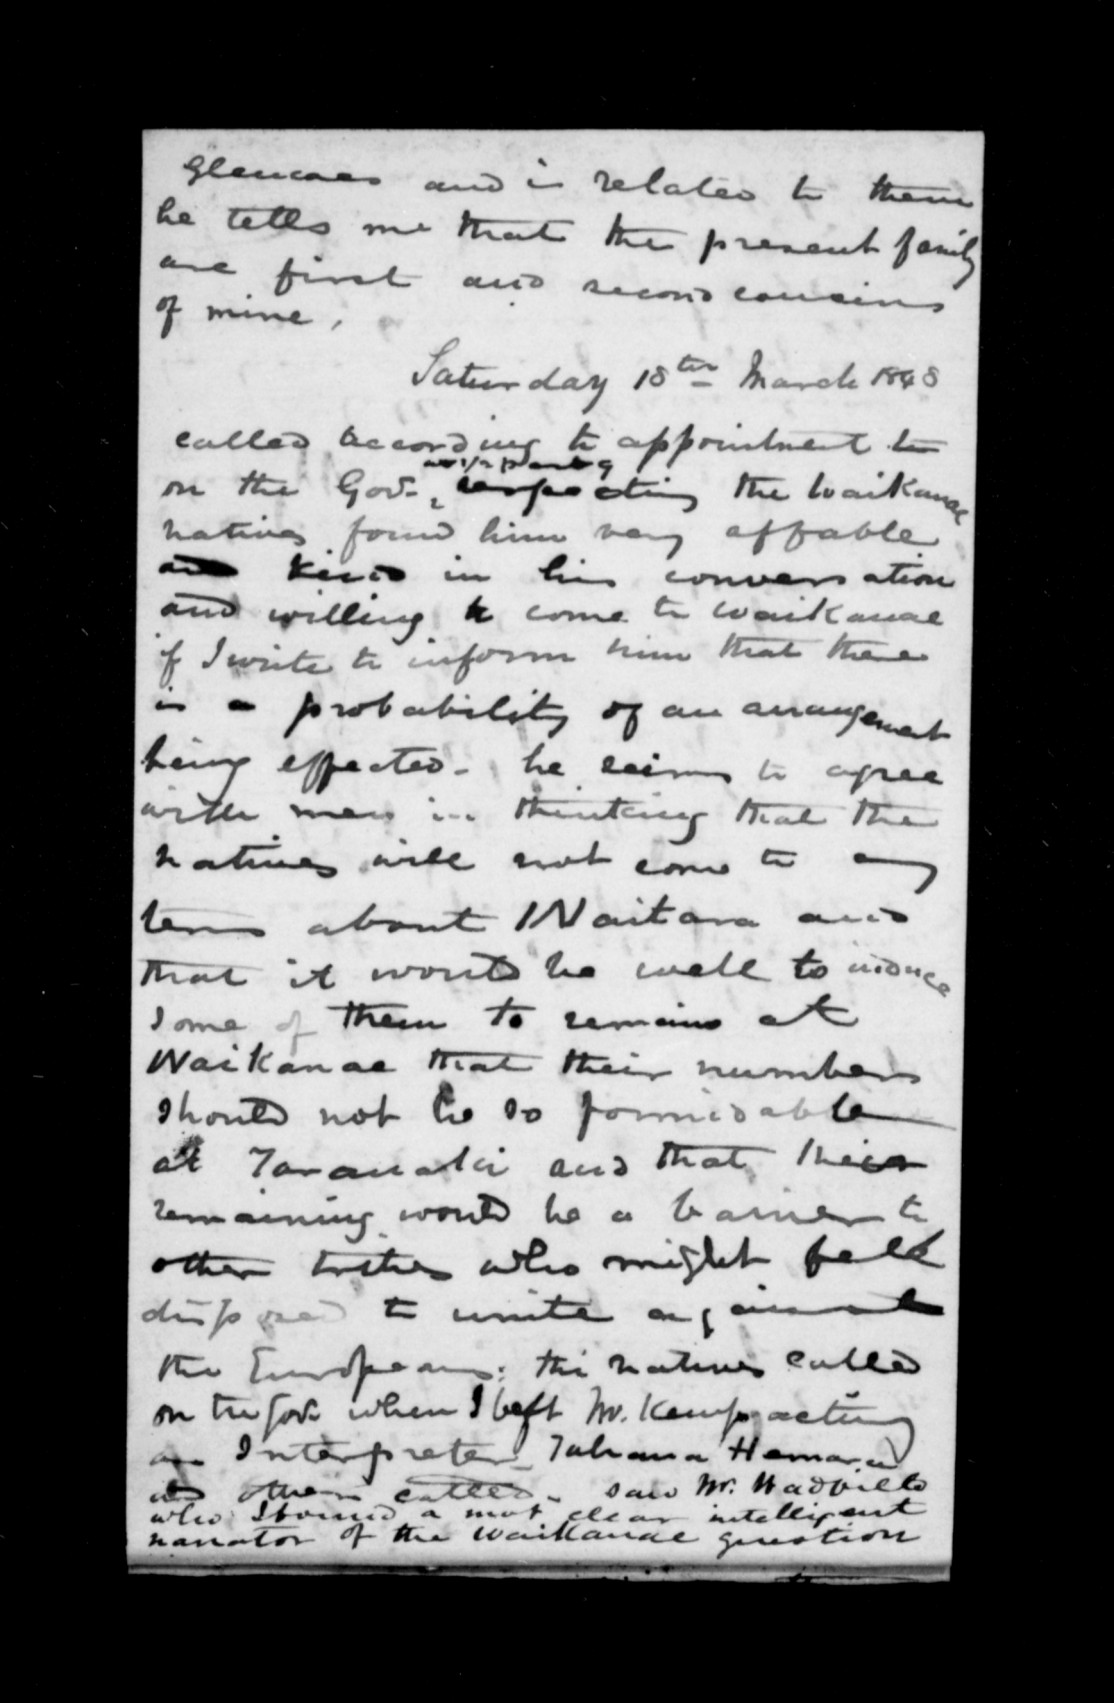 Glencoes and is related to them
he tells me that the present family
are first and second cousins
of mine,
Saturday 18th March 1848
called according to appointment to
on the Govr. respecting the Waikanae
natives found him very affable
and kind in his conversation
and willing to come to Waikanae
if I write to inform him that there
is a probability of an arrangement
being effected - he seems to agree
with men in thinking that the
natives will not come to any
terms about Waitara and
that it would be well to induce
some of them to remain at
Waikanae that their numbers
should not be so formidable
at Taranaki and that their
remaining would be a barrier to
other tribes who might feel
disposed to unite against
the Europeans: the natives called
on the Govr when I left Mr. Kemp acting
as Interpreter Tahana Hemara
and others called - saw Mr. Hadfield
who I found a most clear intelligent
narrator of the Waikanae question